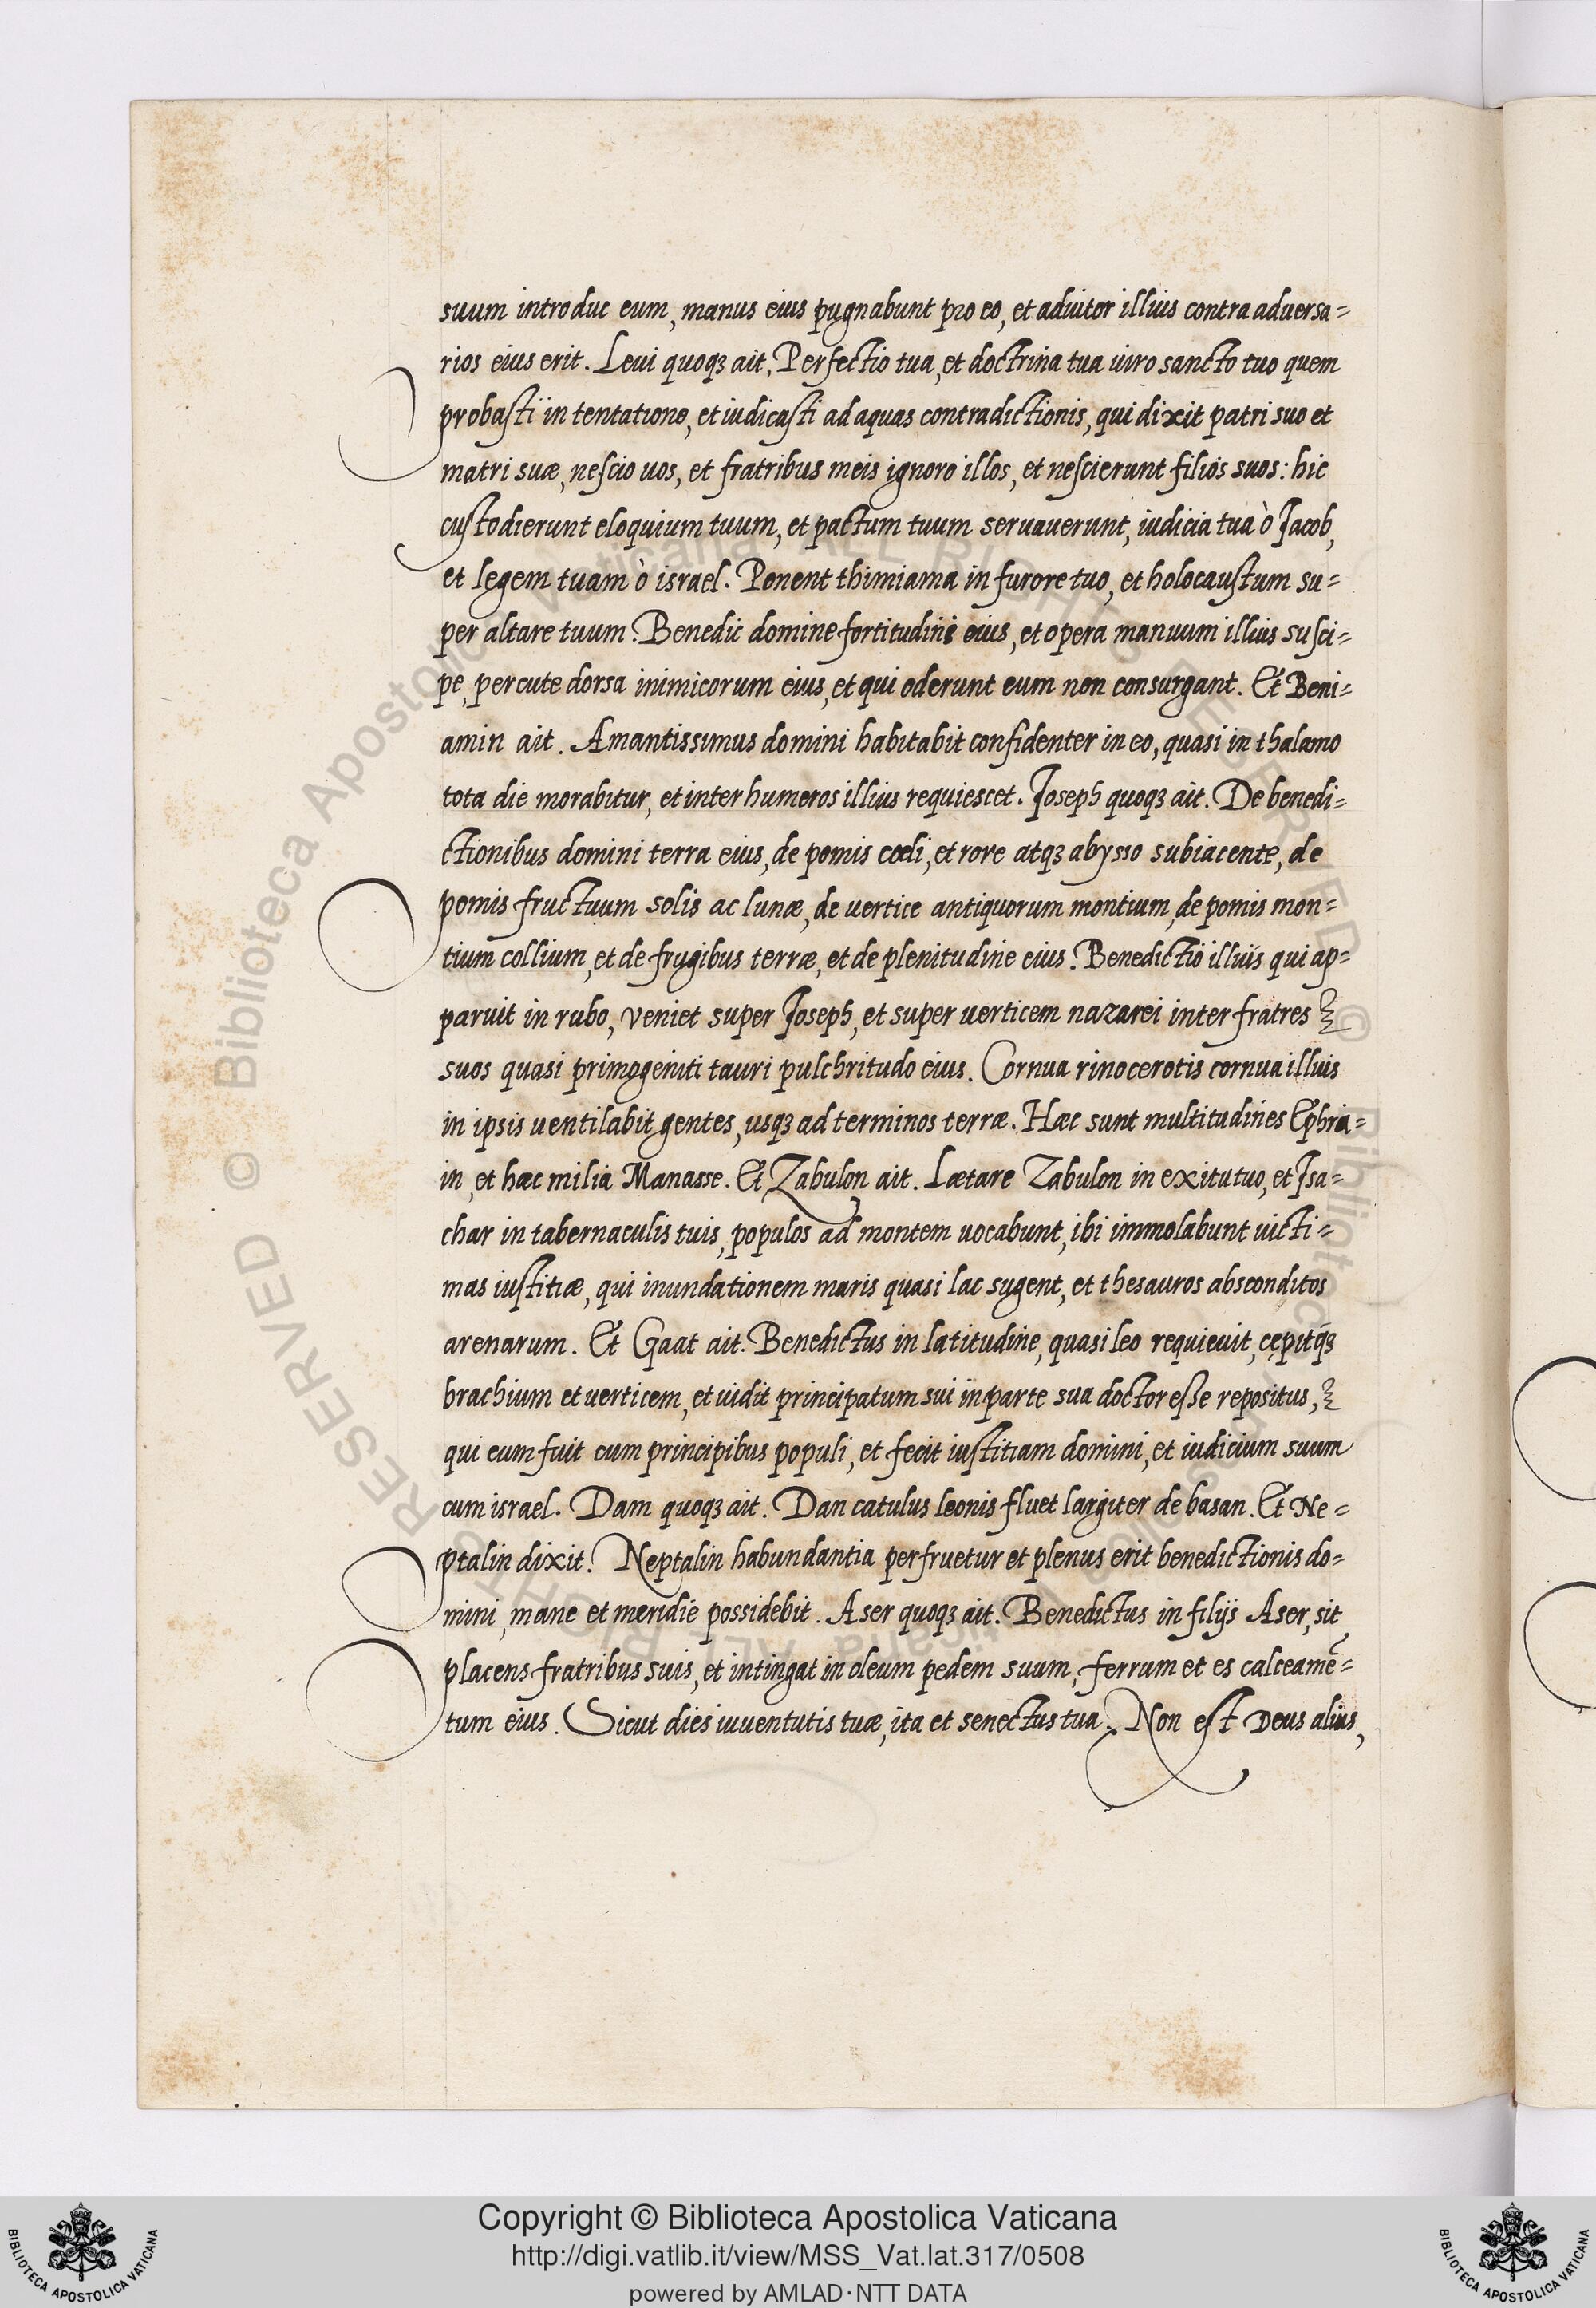 suum introduc eum, manus eius pugnabunt pro eo, et adiutor illius contra aduersa=
rios eius erit. Leui quoqꝫ ait, Perfectio tua, et doctrina tua uiro sancto tuo quem
probasti in tentatione, et iudicasti ad aquas contradictionis, qui dixit patri suo et
matri suæ, nescio uos, et fratribus meis ignoro illos, et nescierunt filios suos: hic
custodierunt eloquium tuum, et pactum tuum seruauerunt, iudicia tua ò Jacob,
et legem tuam ò israel. Ponent thimiama in furore tuo, et holocaustum su=
per altare tuum. Benedic domine fortitudini eius, et opera manuum illius susci=
pe, percute dorsa inimicorum eius, et qui oderunt eum non consurgant. Et Beni=
amin ait. Amantissimus domini habitabit confidenter in eo, quasi in thalamo
tota die morabitur, et inter humeros illius requiescet. Joseph quoqꝫ ait. De benedi=
ctionibus domini terra eius, de pomis cœli, et rore atqꝫ abysso subiacente, de
pomis fructuum solis ac lunæ, de uertice antiquorum montium, de pomis mon=
tium collium, et de frugibus terræ, et de plenitudine eius. Benedictio illius qui ap=
paruit in rubo, veniet super Joseph, et super uerticem nazarei inter fratres
suos quasi primogeniti tauri pulchritudo eius. Cornua rinocerotis cornua illius
in ipsis uentilabit gentes, usqꝫ ad terminos terræ. Hæc sunt multitudines Ephra=
in, et hæc milia Manasse. Et Zabulon ait. Lætare Zabulon in exitu tuo, et Isa=
char in tabernaculis tuis, populos ad montem uocabunt, ibi immolabunt uicti=
mas iustitiæ, qui inundationem maris quasi lac sugent, et thesauros absconditos
arenarum. Et Gaat ait. Benedictus in latitudine, quasi leo requieuit, cępitqꝫ
brachium et uerticem, et uidit principatum sui in parte sua doctor eße repositus,
qui eum fuit cum principibus populi, et fecit iustitiam domini, et iudicium suum
cum israel. Dam quoqꝫ ait. Dan catulus leonis fluet largiter de basan. Et Ne=
ptalin dixit. Neptalin habundantia perfruetur et plenus erit benedictionis do=
mini, mane et meridie possidebit. Aser quoqꝫ ait. Benedictus in filijs Aser, sit
placens fratribus suis, et intingat in oleum pedem suum, ferrum et es calceamē=
tum eius. Sicut dies iuuentutis tuæ, ita et senectus tua. Non est Deus alius,
Copyright © Biblioteca Apostolica Vaticana
http://digi.vatlib.it/view/MSS_Vat.lat.317/0508
powered by AMLAD·NTT DATA